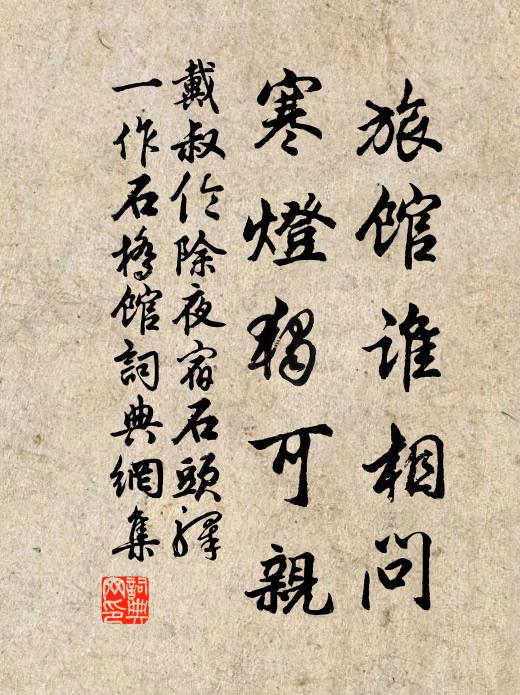 旅館誰相問
寒燈獨可親
戴叔伦除夜宿石頭驛
一作石橋館詞典網集
詞典网印